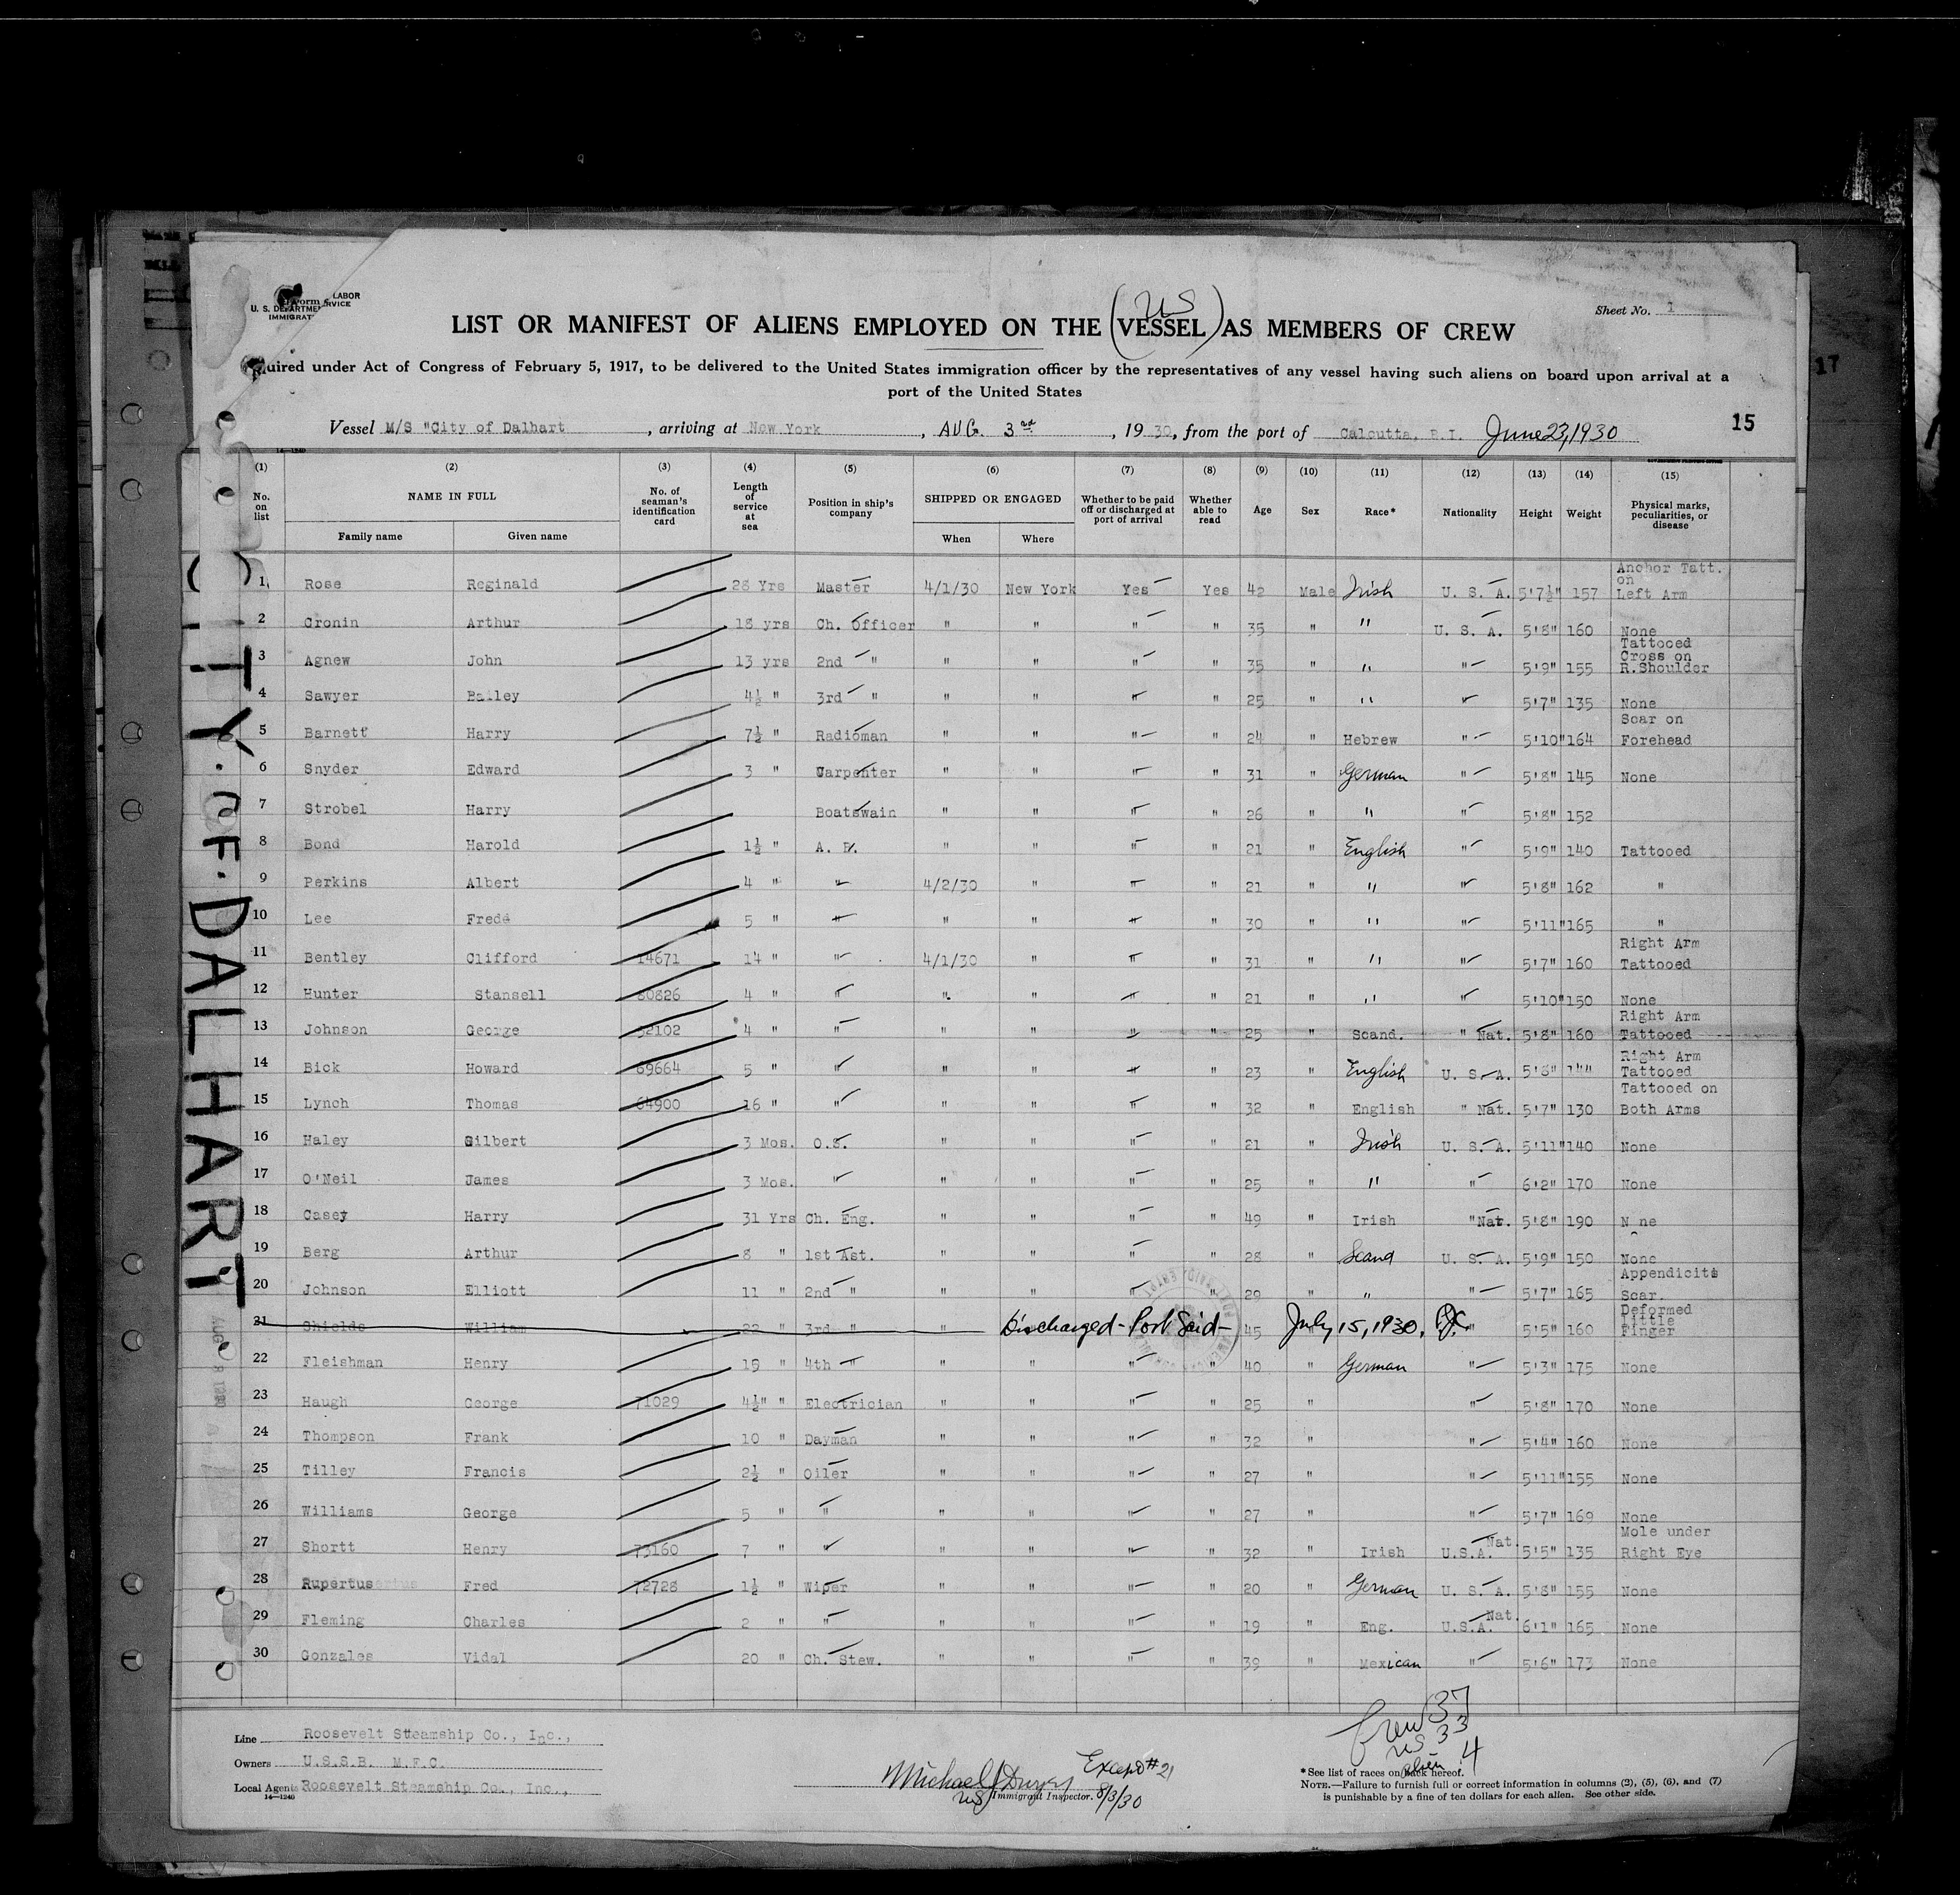 U. S. DEPARTMENT LABOR
IMMIGRAT SERVICE
Sheet No. 1
US
LIST OR MANIFEST OF ALIENS EMPLOYED ON THE (VESSEL) AS MEMBERS OF CREW
quired under Act of Congress of February 5, 1917, to be delivered to the United States immigration officer by the representatives of any vessel having such aliens on board upon arrival at a
port of the United States
17
15
Vessel M/S "City of Dalhart, arriving at New York, AUG. 3rd, 1930, from the port of Calcutta, B.I. June 23, 1930
(1) (2) (3) (4) (5) (6) (7) (8) (9) (10) (11) (12) (13) (14) (15)
No. on list NAME IN FULL Family name Given name No. of seaman's identification card Length of service at sea Position in ship's company SHIPPED OR ENGAGED When Where Whether to be paid off or discharged at port of arrival Whether able to read Age Sex Race* Nationality Height Weight Physical marks, peculiarities, or disease
1 Rose Reginald 28 Yrs Master 4/1/30 New York Yes Yes 42 Male Irish U. S. A. 5'7½" 157 Anchor Tatt. on Left Arm
2 Cronin Arthur 18 yrs Ch. Officer " " " " 35 " " U. S. A. 5'8" 160 None
3 Agnew John 13 yrs 2nd " " " " " 35 " " " 5'9" 155 Tattooed Cross on R.Shoulder
4 Sawyer Bailey 4½ " 3rd " " " " " 25 " " " 5'7" 135 None
5 Barnett Harry 7½ " Radioman " " " " 24 " Hebrew " 5'10" 164 Scar on Forehead
6 Snyder Edward 3 " Carpenter " " " " 31 " German " 5'8" 145 None
7 Strobel Harry Boatswain " " " " 26 " " " 5'8" 152
8 Bond Harold 1½ " A. B. " " " " 21 " English " 5'9" 140 Tattooed
9 Perkins Albert 4 " " 4/2/30 " " " 21 " " " 5'8" 162 "
10 Lee Fred 5 " " " " " " 30 " " " 5'11" 165 "
11 Bentley Clifford 14671 14 " " 4/1/30 " " " 31 " " " 5'7" 160 Right Arm Tattooed
12 Hunter Stansell 80826 4 " " " " " " 21 " " " 5'10" 150 None
13 Johnson George 52102 4 " " " " " " 25 " Scand. " Nat. 5'8" 160 Right Arm Tattooed
14 Bick Howard 69664 5 " " " " " " 23 " English U. S. A. 5'8" 144 Right Arm Tattooed
15 Lynch Thomas 64900 16 " " " " " " 32 " English " Nat. 5'7" 130 Tattooed on Both Arms
16 Haley Gilbert 3 Mos. O.S. " " " " 21 " Irish U. S. A. 5'11" 140 None
17 O'Neil James 3 Mos. " " " " " 25 " " " 6'2" 170 None
18 Casey Harry 31 Yrs Ch. Eng. " " " " 49 " Irish "Nat. 5'8" 190 N ne
19 Berg Arthur 8 " 1st Ast. " " " " 28 " Scand U. S. A. 5'9" 150 None
20 Johnson Elliott 11 " 2nd " " " " " 29 " " " 5'7" 165 Appendicits Scar.
21 Shields William 22 " 3rd " " Discharged - Port Said - 45 July 15, 1930. " 5'5" 160 Deformed Little Finger
22 Fleishman Henry 19 " 4th " " " " " 40 " German " 5'3" 175 None
23 Haugh George 71029 4½" " Electrician " " " " 25 " " 5'8" 170 None
24 Thompson Frank 10 " Dayman " " " " 32 " " 5'4" 160 None
25 Tilley Francis 2½ " Oiler " " " " 27 " " 5'11" 155 None
26 Williams George 5 " " " " " " 27 " " 5'7" 169 None
27 Shortt Henry 73160 7 " " " " " " 32 " Irish U.S.A. Nat. 5'5" 135 Mole under Right Eye
28 Rupertus Fred 72728 1½ " Wiper " " " " 20 " German U. S. A. 5'8" 155 None
29 Fleming Charles 2 " " " " " " 19 " Eng. U.S.A. Nat. 6'1" 165 None
30 Gonzales Vidal 20 " Ch. Stew. " " " " 39 " Mexican " 5'6" 173 None
CITY. OF. DALHART
Crew 37
US 33
alien 4
Line Roosevelt Steamship Co., Inc.,
Owners U.S.S.B. M.F.C.
Local Agents Roosevelt Steamship Co., Inc.,
14-1240
Michael J Dwyer
Except #21
US Immigrant Inspector. 8/3/30
*See list of races on back hereof.
NOTE.—Failure to furnish full or correct information in columns (2), (5), (6), and (7)
is punishable by a fine of ten dollars for each alien. See other side.